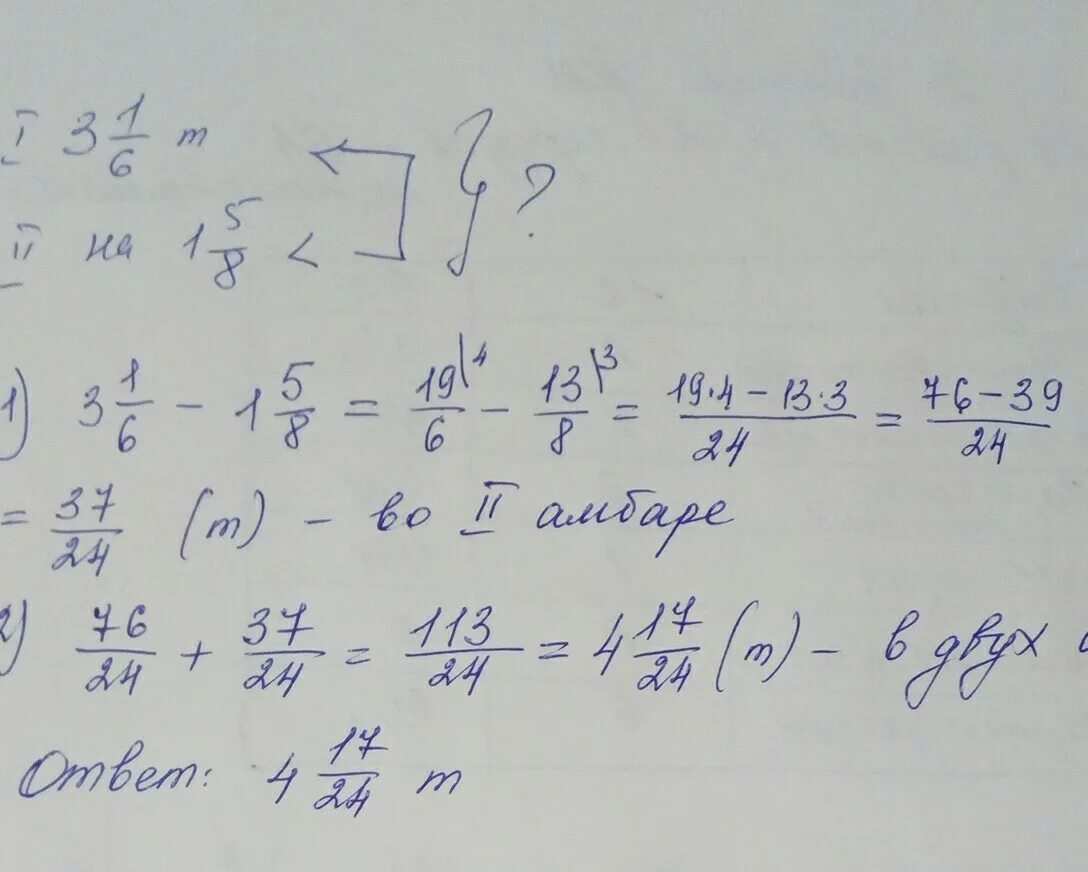 I 3 1/6 т
II на 1 5/8 < } ?
1) 3 1/6 - 1 5/8 = 19/6 |4 - 13/8 |3 = (19·4 - 13·3)/24 = (76-39)/24
= 37/24 (т) - во II амбаре
2) 76/24 + 37/24 = 113/24 = 4 17/24 (т) - в двух
Ответ: 4 17/24 т